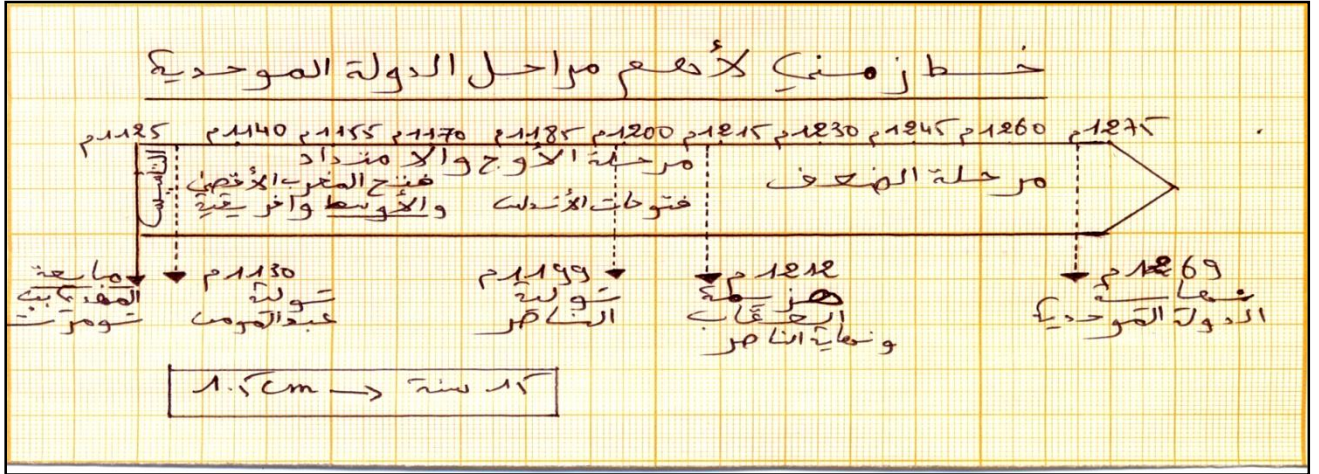 خط زمني لأهم مراحل الدولة الموحدية
1125م 1140م 1155م 1170م 1185م 1200م 1215م 1230م 1245م 1260م 1275م
التأسيس
مرحلة الأوج والامتداد
فتح المغرب الأقصى
والأوسط وافريقية
فتوحات الأندلس
مرحلة الضعف
مبايعة
المهدي بن
تومرت
1130م
تولية
عبد المومن
1199م
تولية
الناصر
1212م
هزيمة
العقاب
ونهاية الناصر
1269م
نهاية
الدولة الموحدية
1.5cm → 15 سنة